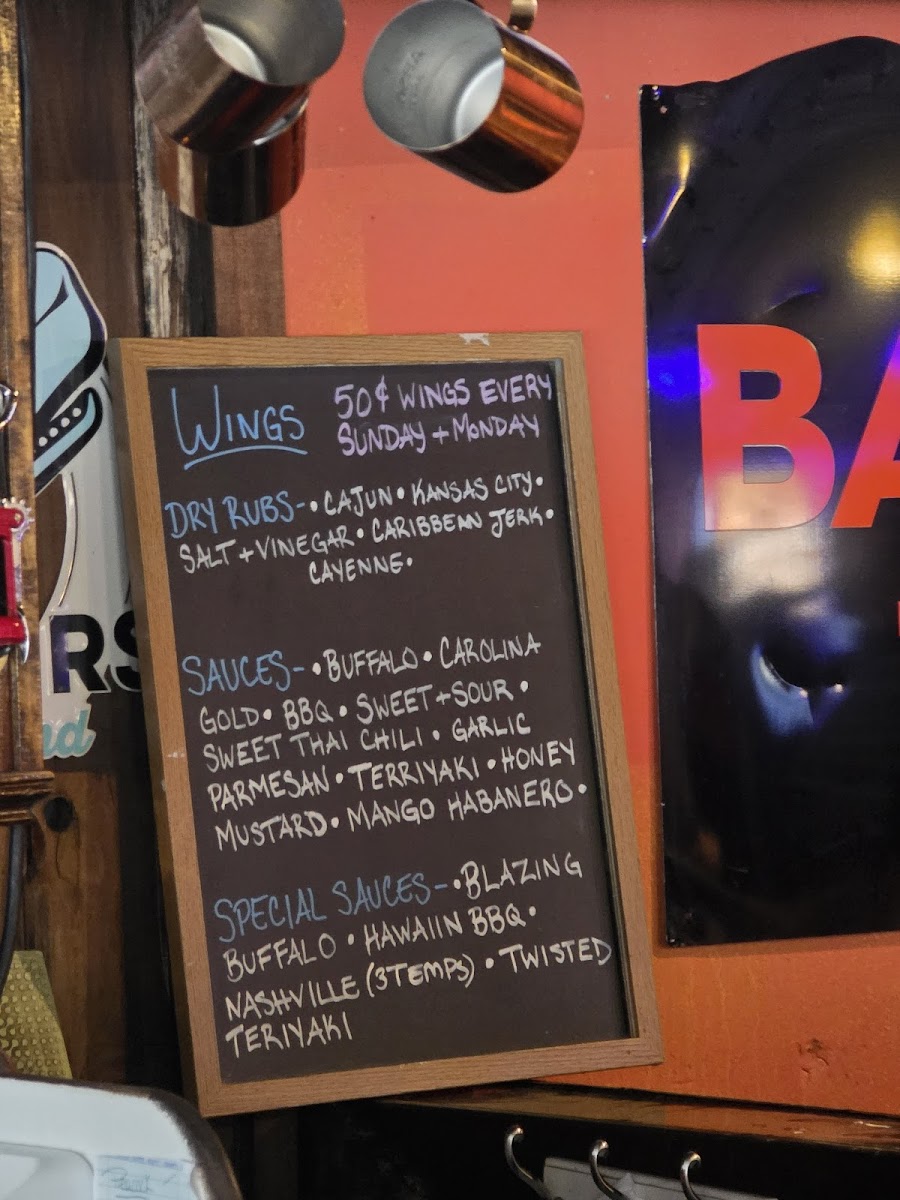 WINGS
50¢ WINGS EVERY
SUNDAY + MONDAY
DRY RUBS- • CAJUN • KANSAS CITY •
SALT + VINEGAR • CARIBBEAN JERK •
CAYENNE •
SAUCES- • BUFFALO • CAROLINA
GOLD • BBQ • SWEET + SOUR •
SWEET THAI CHILI • GARLIC
PARMESAN • TERRIYAKI • HONEY
MUSTARD • MANGO HABANERO •
SPECIAL SAUCES- • BLAZING
BUFFALO • HAWAIIN BBQ •
NASHVILLE (3TEMPS) • TWISTED
TERIYAKI
BA
RS
nd